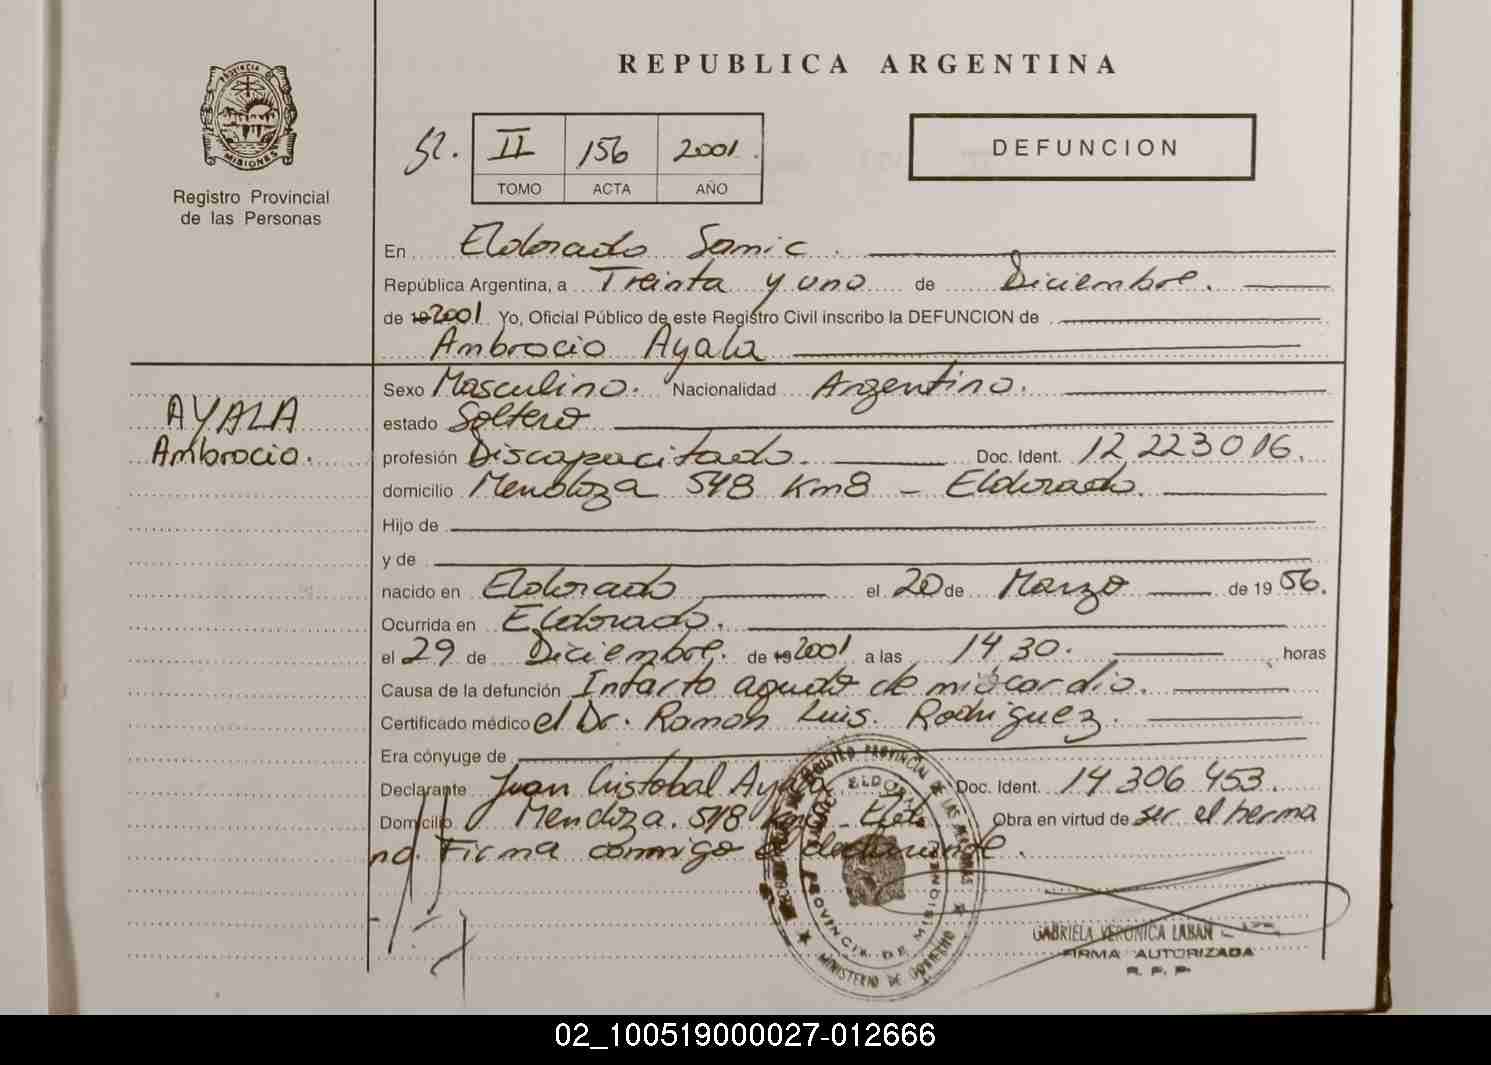 REPUBLICA ARGENTINA
PROVINCIA DE MISIONES
Registro Provincial
de las Personas
II 156 2001.
TOMO ACTA AÑO
DEFUNCION
En Eldorado Samic.
República Argentina, a Treinta y uno de Diciembre.
de 19 2001 Yo, Oficial Público de este Registro Civil inscribo la DEFUNCION de
Ambrocio Ayala
AYALA
Ambrocio.
Sexo Masculino. Nacionalidad Argentino.
estado Soltero
profesión Discapacitado. Doc. Ident. 12 223 016.
domicilio Mendoza 548 Km8 - Eldorado.
Hijo de
y de
nacido en Eldorado el 20 de Marzo de 19 56.
Ocurrida en Eldorado.
el 29 de Diciembre. de 19 2001 a las 14 30. horas
Causa de la defunción Infarto agudo de miocardio.
Certificado médico el Dr. Ramon Luis. Rodriguez.
Era cónyuge de
Declarante Juan Cristobal Ayala Doc. Ident. 14 306 453.
Domicilio Mendoza. 548 Km8 - Obra en virtud de ser el herma
no. Firma conmigo el declarante.
REGISTRO PROVINCIAL DE LAS PERSONAS
ELDORADO
PROVINCIA DE MISIONES
MINISTERIO DE GOBIERNO
GABRIELA VERONICA LABAN
FIRMA AUTORIZADA
R. P. P.
02_100519000027-012666